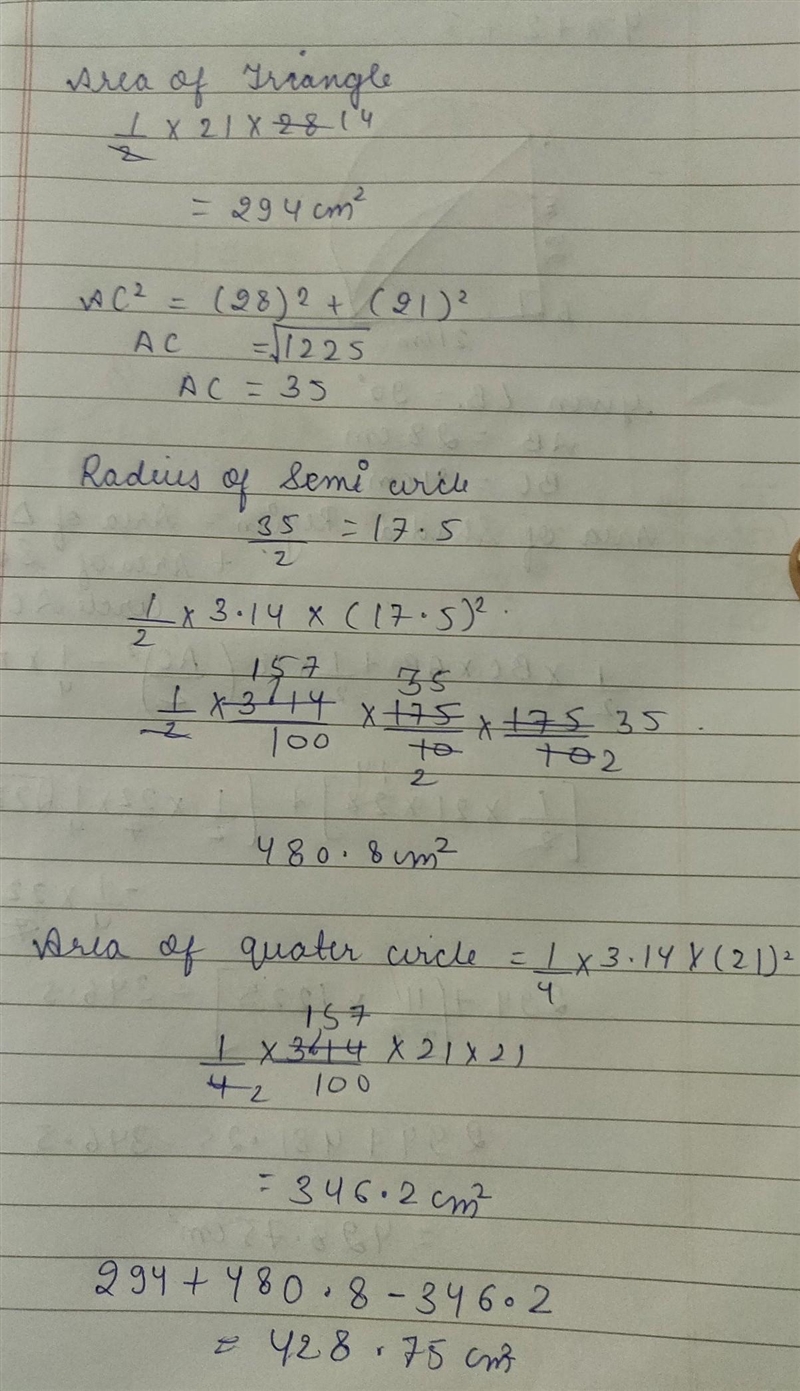 Area of Triangle
1/2 × 21 × 28 14
= 294 cm²
AC² = (28)² + (21)²
AC = √1225
AC = 35
Radius of Semi circle
35/2 = 17.5
1/2 × 3.14 × (17.5)².
157 35
1/2 × 314/100 × 175/10 × 175/10 35.
2 2
480.8 cm²
Area of quater circle = 1/4 × 3.14 × (21)²
157
1/4 2 × 314/100 × 21 × 21
= 346.2 cm²
294 + 480.8 - 346.2
= 428.75 cm²